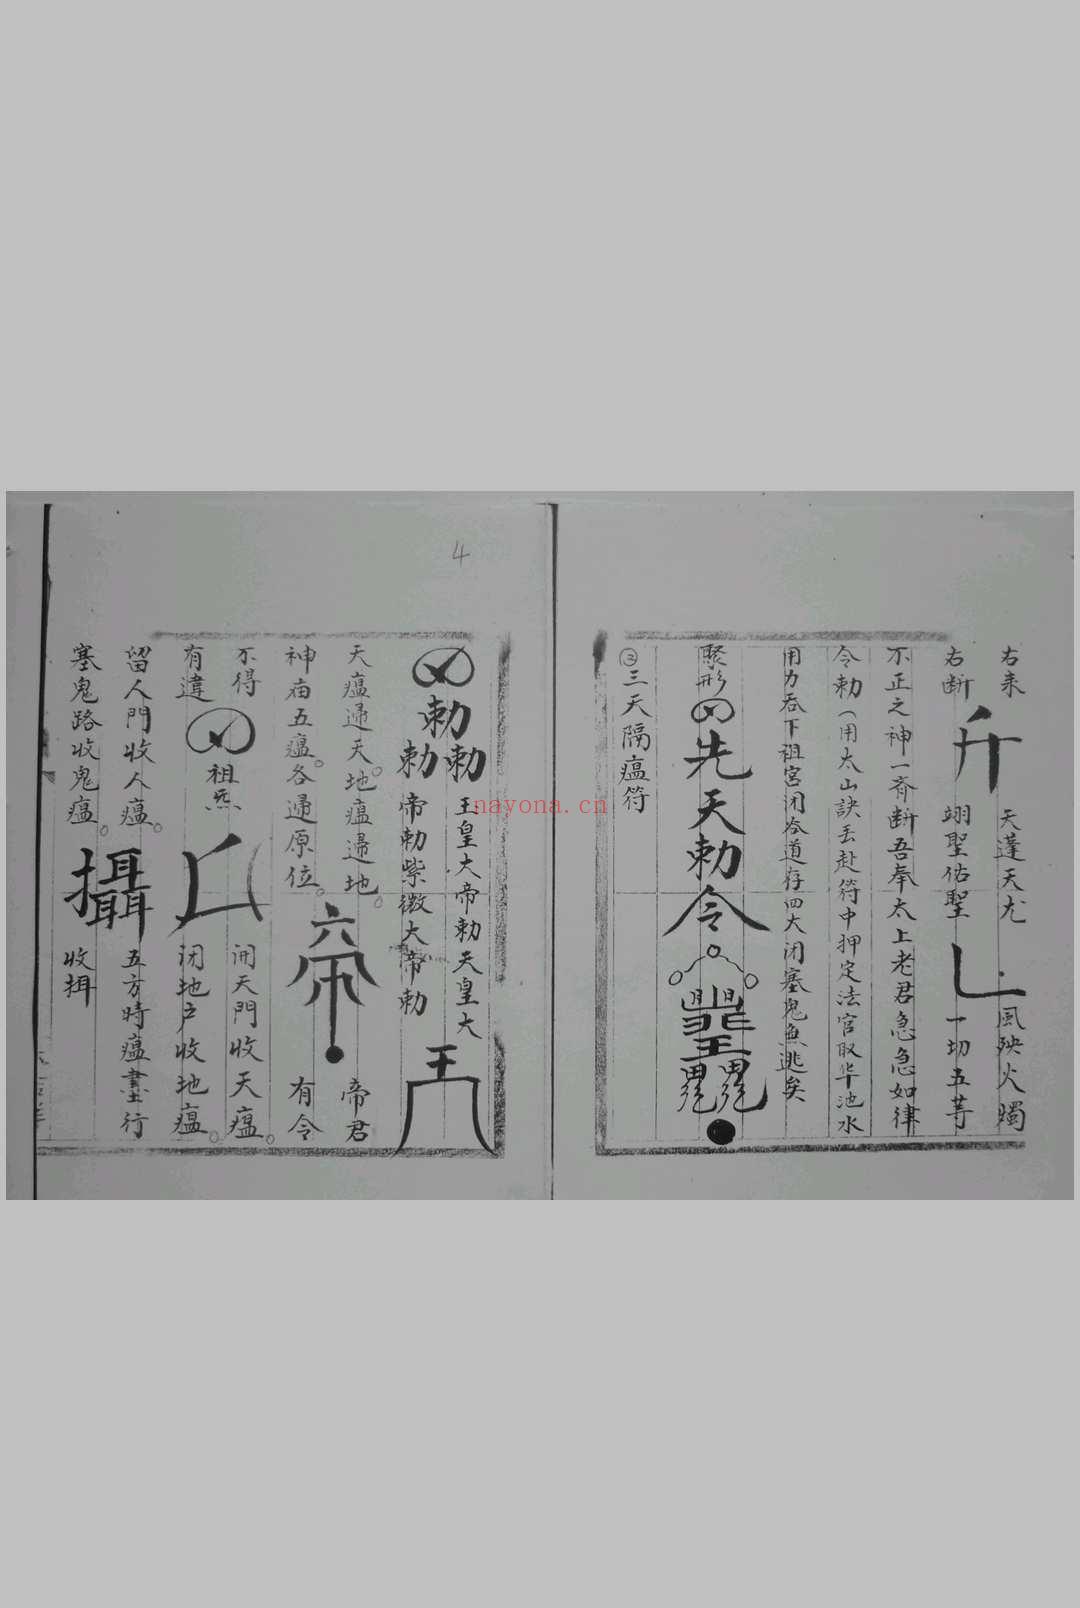 右来
天蓬天尤
風殃火燭
右断
翊聖佑聖
一切五䓁
不正之神一斉断吾奉太上老君急急如律
令勅（用太山訣丢赴符中押定法官取华池水
用力吞下祖宮闭 道存四大闭塞鬼無逃矣
聚形
先天勅令
②三天隔瘟符
4
勅勅勅
玉皇大帝勅天皇大
帝勅紫微大帝勅
天瘟逥天。地瘟逥地。
帝君
神庙五瘟。各逥原位。
有令
不得
祖炁
開天門收天瘟。
有違
闭地户收地瘟。
留人門收人瘟。
五方時瘟盡行
塞鬼路收鬼瘟。
攝
收捐
nayona.cn